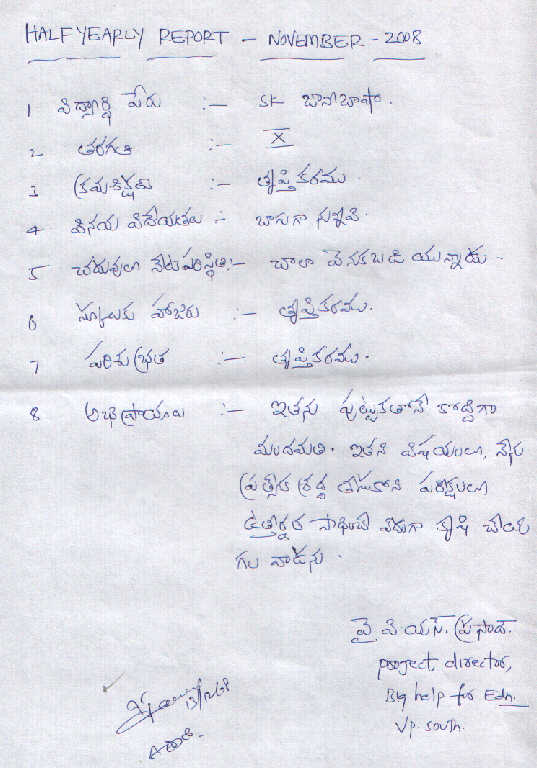 HALF YEARLY REPORT - NOVEMBER - 2008
1 విద్యార్థి పేరు :- SK జానీబాషా.
2 తరగతి :- X
3 క్రమశిక్షణ :- తృప్తికరము.
4 వినయ విధేయతలు :- బాగుగా నున్నవి.
5 చదువులో నేటి పరిస్థితి :- చాలా వెనుకబడి యున్నాడు.
6 స్కూలుకు హాజరు :- తృప్తికరము.
7 పరిశుభ్రత :- తృప్తికరము.
8 అభిప్రాయాలు :- ఇతను పుట్టుకతోనే కొద్దిగా
మందమతి. ఇతని విషయంలో, నేను
ప్రత్యేక శ్రద్ధ తీసుకొని పరీక్షలలో
ఉత్తీర్ణత సాధించే విధంగా కృషి చేయ
గల వాడను.
వై.వి.యస్. ప్రసాద్.
project director,
Big help for Edn.
Vp. south.
13/12/08